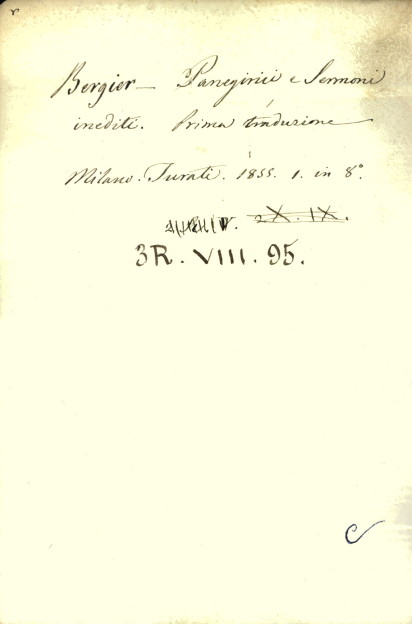 r
Bergier — Panegirici e Sermoni
inediti. Prima traduzione
Milano. Turati. 1855. 1. in 8°.
2X. IX.
3R. VIII. 95.
C